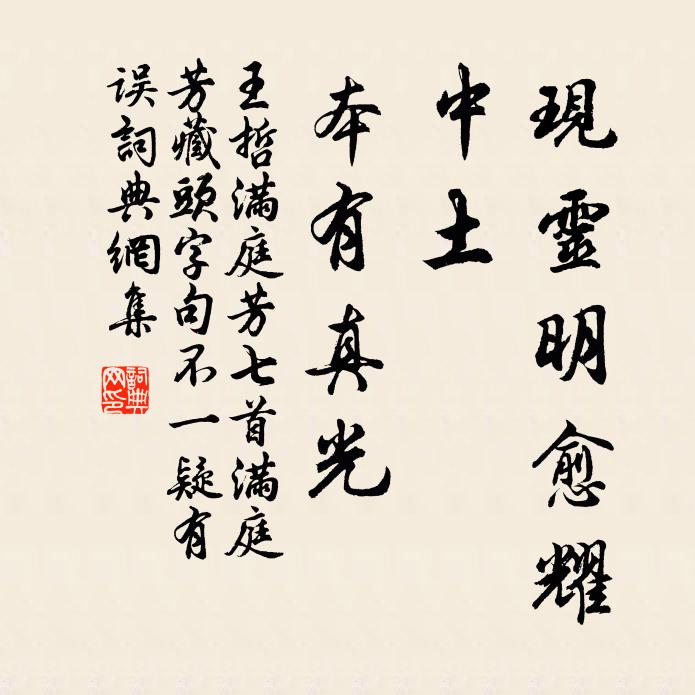 現靈明愈耀
中土
本有真光
王哲滿庭芳七首滿庭
芳藏頭字句不一疑有
误詞典網集
詞典
网印